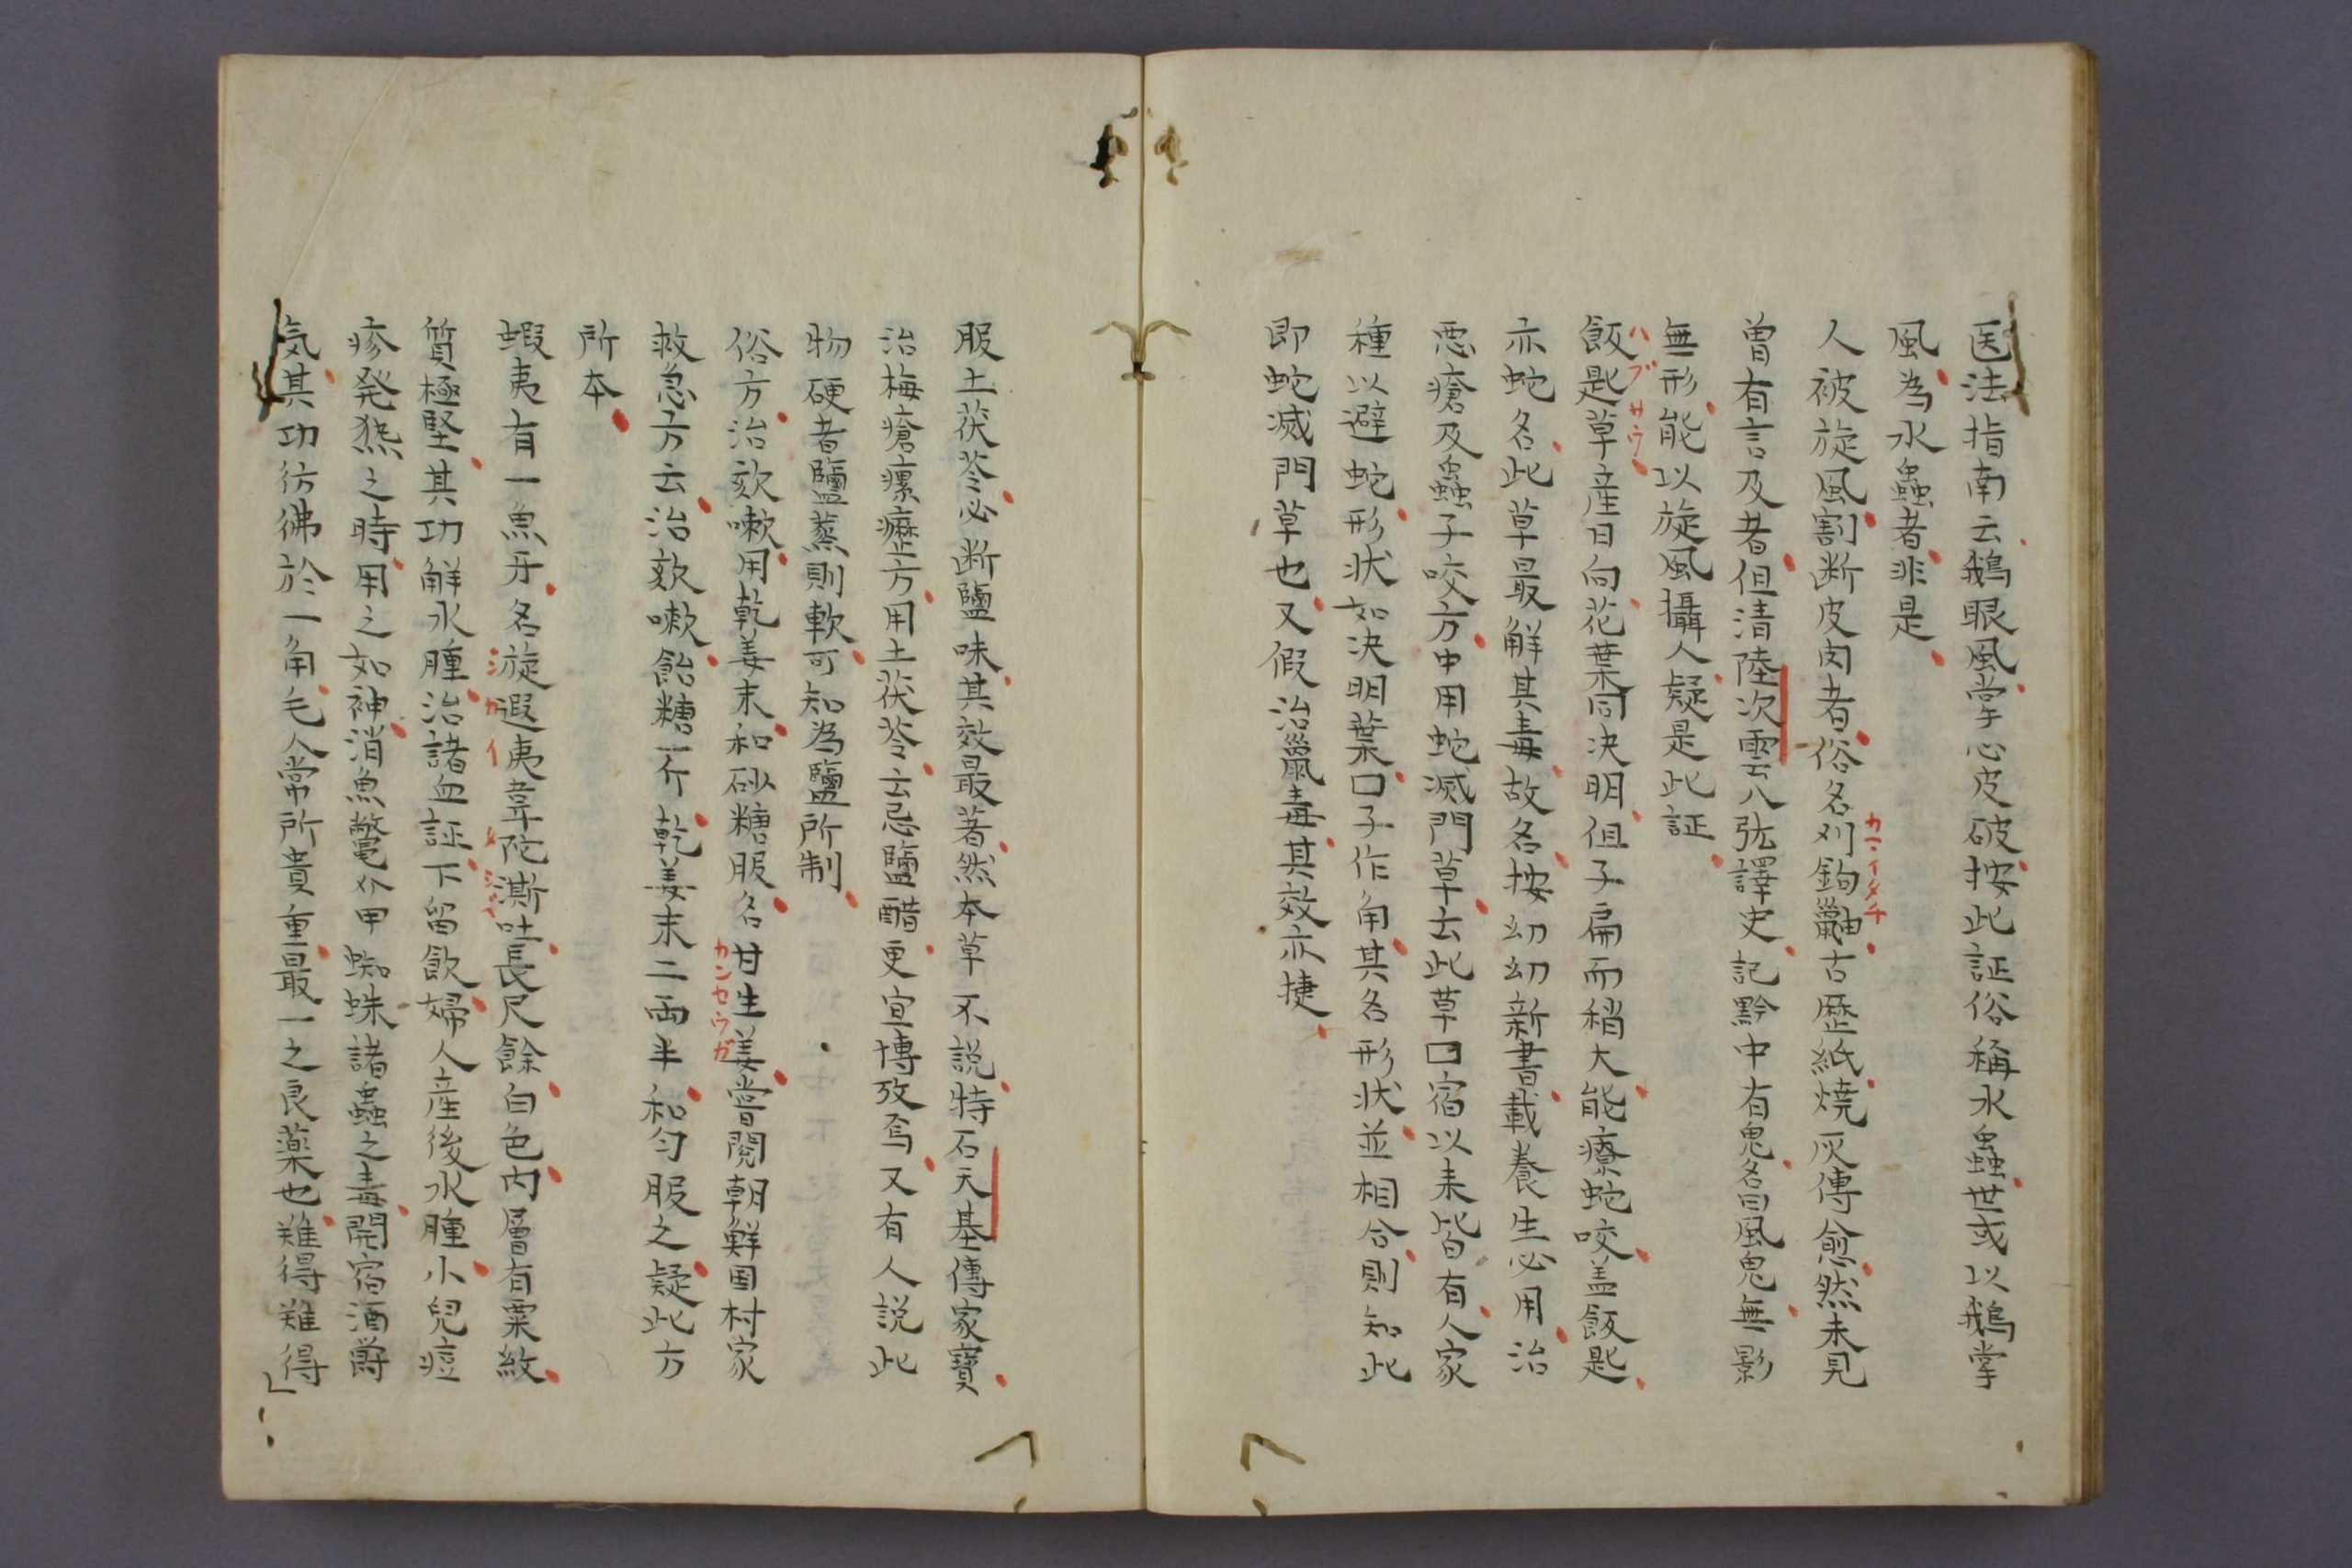 医法指南云鵝眼風掌心皮破按此証俗稱水蟲世或以鵝掌
風為水蟲者非是
人被旋風割断皮肉者俗名刈鉤鼬古歴紙焼灰傅愈然未見
カマイタチ
曽有言及者但清陸次雲八紘譯史記黔中有鬼名曰風鬼無影
無形能以旋風攝人疑是此証
飯匙草産日向花葉同决明但子扁而稍大能療蛇咬盖飯匙
ハブサウ
亦蛇名此草最解其毒故名按幼幼新書載養生必用治
悪瘡及蟲子咬方中用蛇滅門草云此草口宿以来皆有人家
種以避蛇形状如决明葉口子作角其名形状並相合則知此
即蛇滅門草也又假治鼠毒其效亦捷
服土茯苓必断鹽味其效最著然本草不説特石天基傳家寶
治梅瘡瘰癧方用土茯苓云忌鹽醋更宣博攷焉又有人説此
物硬者鹽蒸則軟可知為鹽所制
俗方治欬嗽用乾姜末和砂糖服名甘生姜嘗閲朝鮮国村家
カンセウガ
救急方云治欬嗽飴糖一斤乾姜末二両半和匀服之疑此方
所本
蝦夷有一魚牙名漩遐夷韋陀澌吐長尺餘白色内層有粟紋
質極堅其功解水腫治諸血証下留飲婦人産後水腫小兒痘
疹発熱之時用之如神消魚鼈介甲蜘蛛諸蟲之毒開宿酒爵
気其功彷彿於一角毛人常所貴重最一之良薬也難得難得